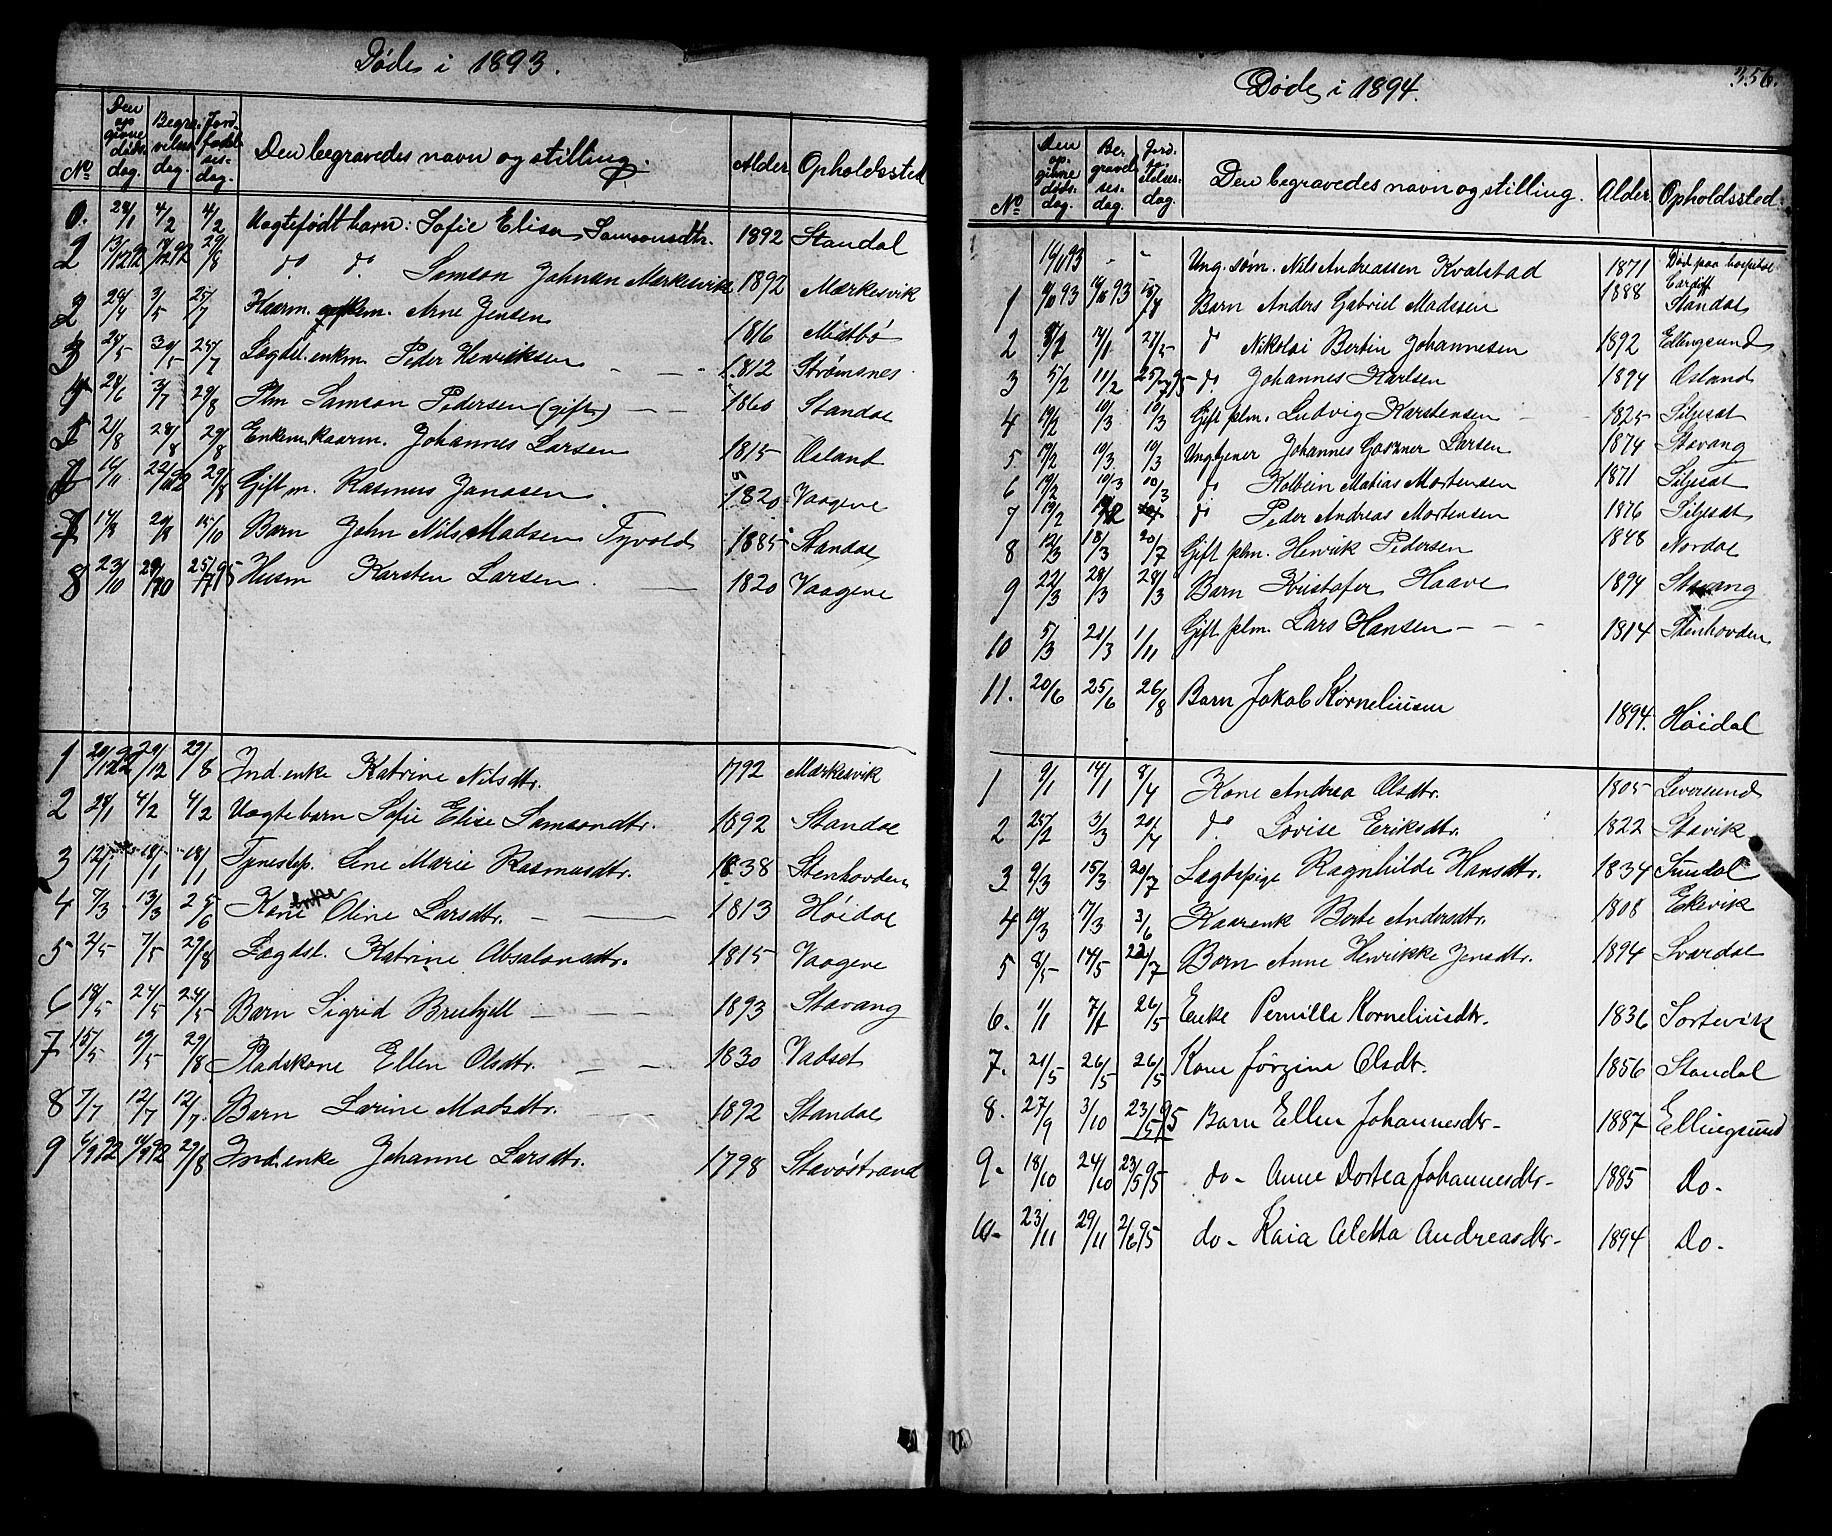 Døde i 1893.
No Den opgivne døds dag. Begravelses dag. Jordfæstelses- dag. Den begravedes navn og stilling. Alder Opholdssted
0. 28/1 4/2 4/2 Uægtefødt barn: Sofie Elisa Samsonsdtr. 1892 Standal
2 13/12 92 17/12 92 29/8 do do Samson Johnsen Markesvik 1892 Markesvik
2 3/5 25/7 Kaarm. Arne Jensen 1816 Midtbø
3 24/5 30/5 25/7 Lægdsl. enkm. Peder Henriksen 1812 Strømsnes
4 28/6 3/7 29/8 Plm Samson Pedersen (gift) 1860 Standal
5 21/8 28/8 29/8 Enkem. kaarm. Johannes Larsen 1815 Osland
29/8 Gift m. Rasmus Janasen 1820 Vaagene
7 14/8 20/8 15/10 Barn John Nils Madsen Tyvold 1885 Standal
8 23/10 29/10 25/7 95 Husm Karsten Larsen 1820 Vaagene
1 20/12 92 29/12 29/8 Ind. enke Katrine Nilsdtr. 1792 Markesvik
2 28/1 4/2 4/2 Uægte barn Sofie Elise Samsondtr. 1892 Standal
3 12/1 18/1 18/1 Tjenestep. Lene Marie Rasmusdtr. 1838 Stenhovden
4 7/3 13/3 25/6 Kone enke Oline Larsdtr. 1813 Høidal
5 2/5 7/5 29/8 Lægdsl. Katrine Absalonsdtr. 1815 Vaagene
6 18/5 24/5 24/5 Barn Sigrid Bruhjell 1893 Stavang
7 15/5 19/5 29/8 Pladskone Ellen Olsdtr. 1830 Vadset
8 7/7 12/7 12/7. Barn Larine Madsdtr. 1892 Standal
9 6/9 92 92 29/8 Ind. enke Johanne Larsdtr. 1798 Stavøstrand
Døde i 1894.
356.
No Den opgivne døds. dag. Begravelses- dag. Jordfæstelses- dag. Den begravedes navn og stilling. Alder Opholdssted.
93 - - Ung. søm. Nils Andreassen Kvalstad 1871 Død paa hospital Cardiff
1 93 93 Barn Anders Gabriel Madssen 1888 Standal
2 14/1 27/5 do Nikolai Bertin Johannesen 1892 Ellingsund
3 5/2 11/2 25/7 95 do Johannes Karlsen 1894 Osland
4 19/2 10/3 10/3 Gift plm. Ludvig Karstensen 1825 Siljesat
5 19/2 10/3 10/3 Ung. Johannes Larsen 1874 Stavang
6 19/2 10/3 10/3 do Kolbein Matias Mortensen 1871 Siljesat
7 19/2 do Peder Andreas Mortensen 1876 Siljesat
8 12/3 18/3 20/7 Gift plm. Henrik Pedersen 1848 Nordal
9 22/3 28/3 28/3 Barn Kristofer Haave 1894 Stavang
10 5/3 21/3 1/11 Gift plm. Lars Hansen 1814 Stenhovden
11. 20/6 25/6 26/8 Barn Jakob Korneliusen 1894. Høidal
1 9/1 14/1 8/4 Kone Andrea Olsdtr. 1805 Leversund
2 25/2 3/3 20/4 do. Lovise Eriksdtr. 1822 Stavik
3 9/3 15/3 20/7 Lægdspige Ragnhilde Hansdtr. 1834 Sundal
4 19/3 17/3 3/6 Kaarenk Berte Andersdtr. 1808 Ekevik
5 8/5 14/5 22/7 Barn Anne Henrikke Jensdtr. 1894 Svardal
6. 1/1 7/1 26/5 Enke Pernille Korneliusdtr. 1836 Sortevik
7. 21/5 26/5 26/5 Kone Jørgine Olsdtr. 1856 Standal
8. 27/9 3/10 23/5 95 Barn Ellen Johannesdtr- 1887 Ellingsund
9- 18/10 24/10 23/5 95 do- Anne Dortea Johannesdtr- 1885 Do-
10- 23/11 29/11 2/6 95 do- Kaia Aletta Andreasdtr- 1894 Do-